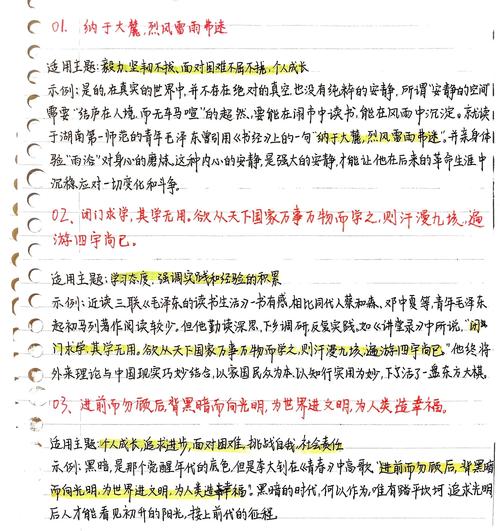 01. 纳于大麓,烈风雷雨弗迷。
适用主题:毅力,坚韧不拔、面对困难不屈不挠,个人成长
示例:是的,在真实的世界中,并不存在绝对的真空,也没有纯粹的安静,所谓"安静的空间
需要"结庐在人境,而无车马喧"的超然、要能在闹市中读书,能在风雨中沉淀。就读
于湖南第一师范的青年毛泽东曾引用《书经》上的一句"纳于大麓,烈风雷雨弗迷。"并亲身体
验"雨浴"对身心的磨炼,这种内心的安静,是强大的安静,才能让他在后来的革命生涯中
沉稳应对一切变化和斗争。
02. 闭门求学,其学无用。欲从天下国家万事万物而学之,则汗漫九垓,遍
游四宇尚已。
适用主题:学习态度、强调实践和经验的积累
示例:近读三联《毛泽东的读书生活》一书有感,相比同代人蔡和森、邓中夏等,青年毛泽东
起初马列著作阅读较少。但他勤读深思、下乡调研,反复实践,如《讲堂录》中所说,"闭
门求学,其学无用。欲从天下国家万事万物而学之,则汗漫九垓,遍游四宇尚已"他终将
外来理论与中国现实巧妙结合,以家国民众为本,以知行实用为妙,下活了一盘东方大棋。
03. 进前而勿顾后,背黑暗而向光明,为世界进文明,为人类造幸福。
适用主题:个人成长,追求进步,面对困难,挑战自我,社会责任
示例:黑暗,是那个觉醒年代的底色,但是李大钊在《青春》中高歌"进前而勿顾后,背黑暗
而向光明,为世界进文明,为人类造幸福。"黑暗的时代,何以作为,唯有踏平坎坷,追求光明
后人才能看见初升的阳光,接上前代的征程。